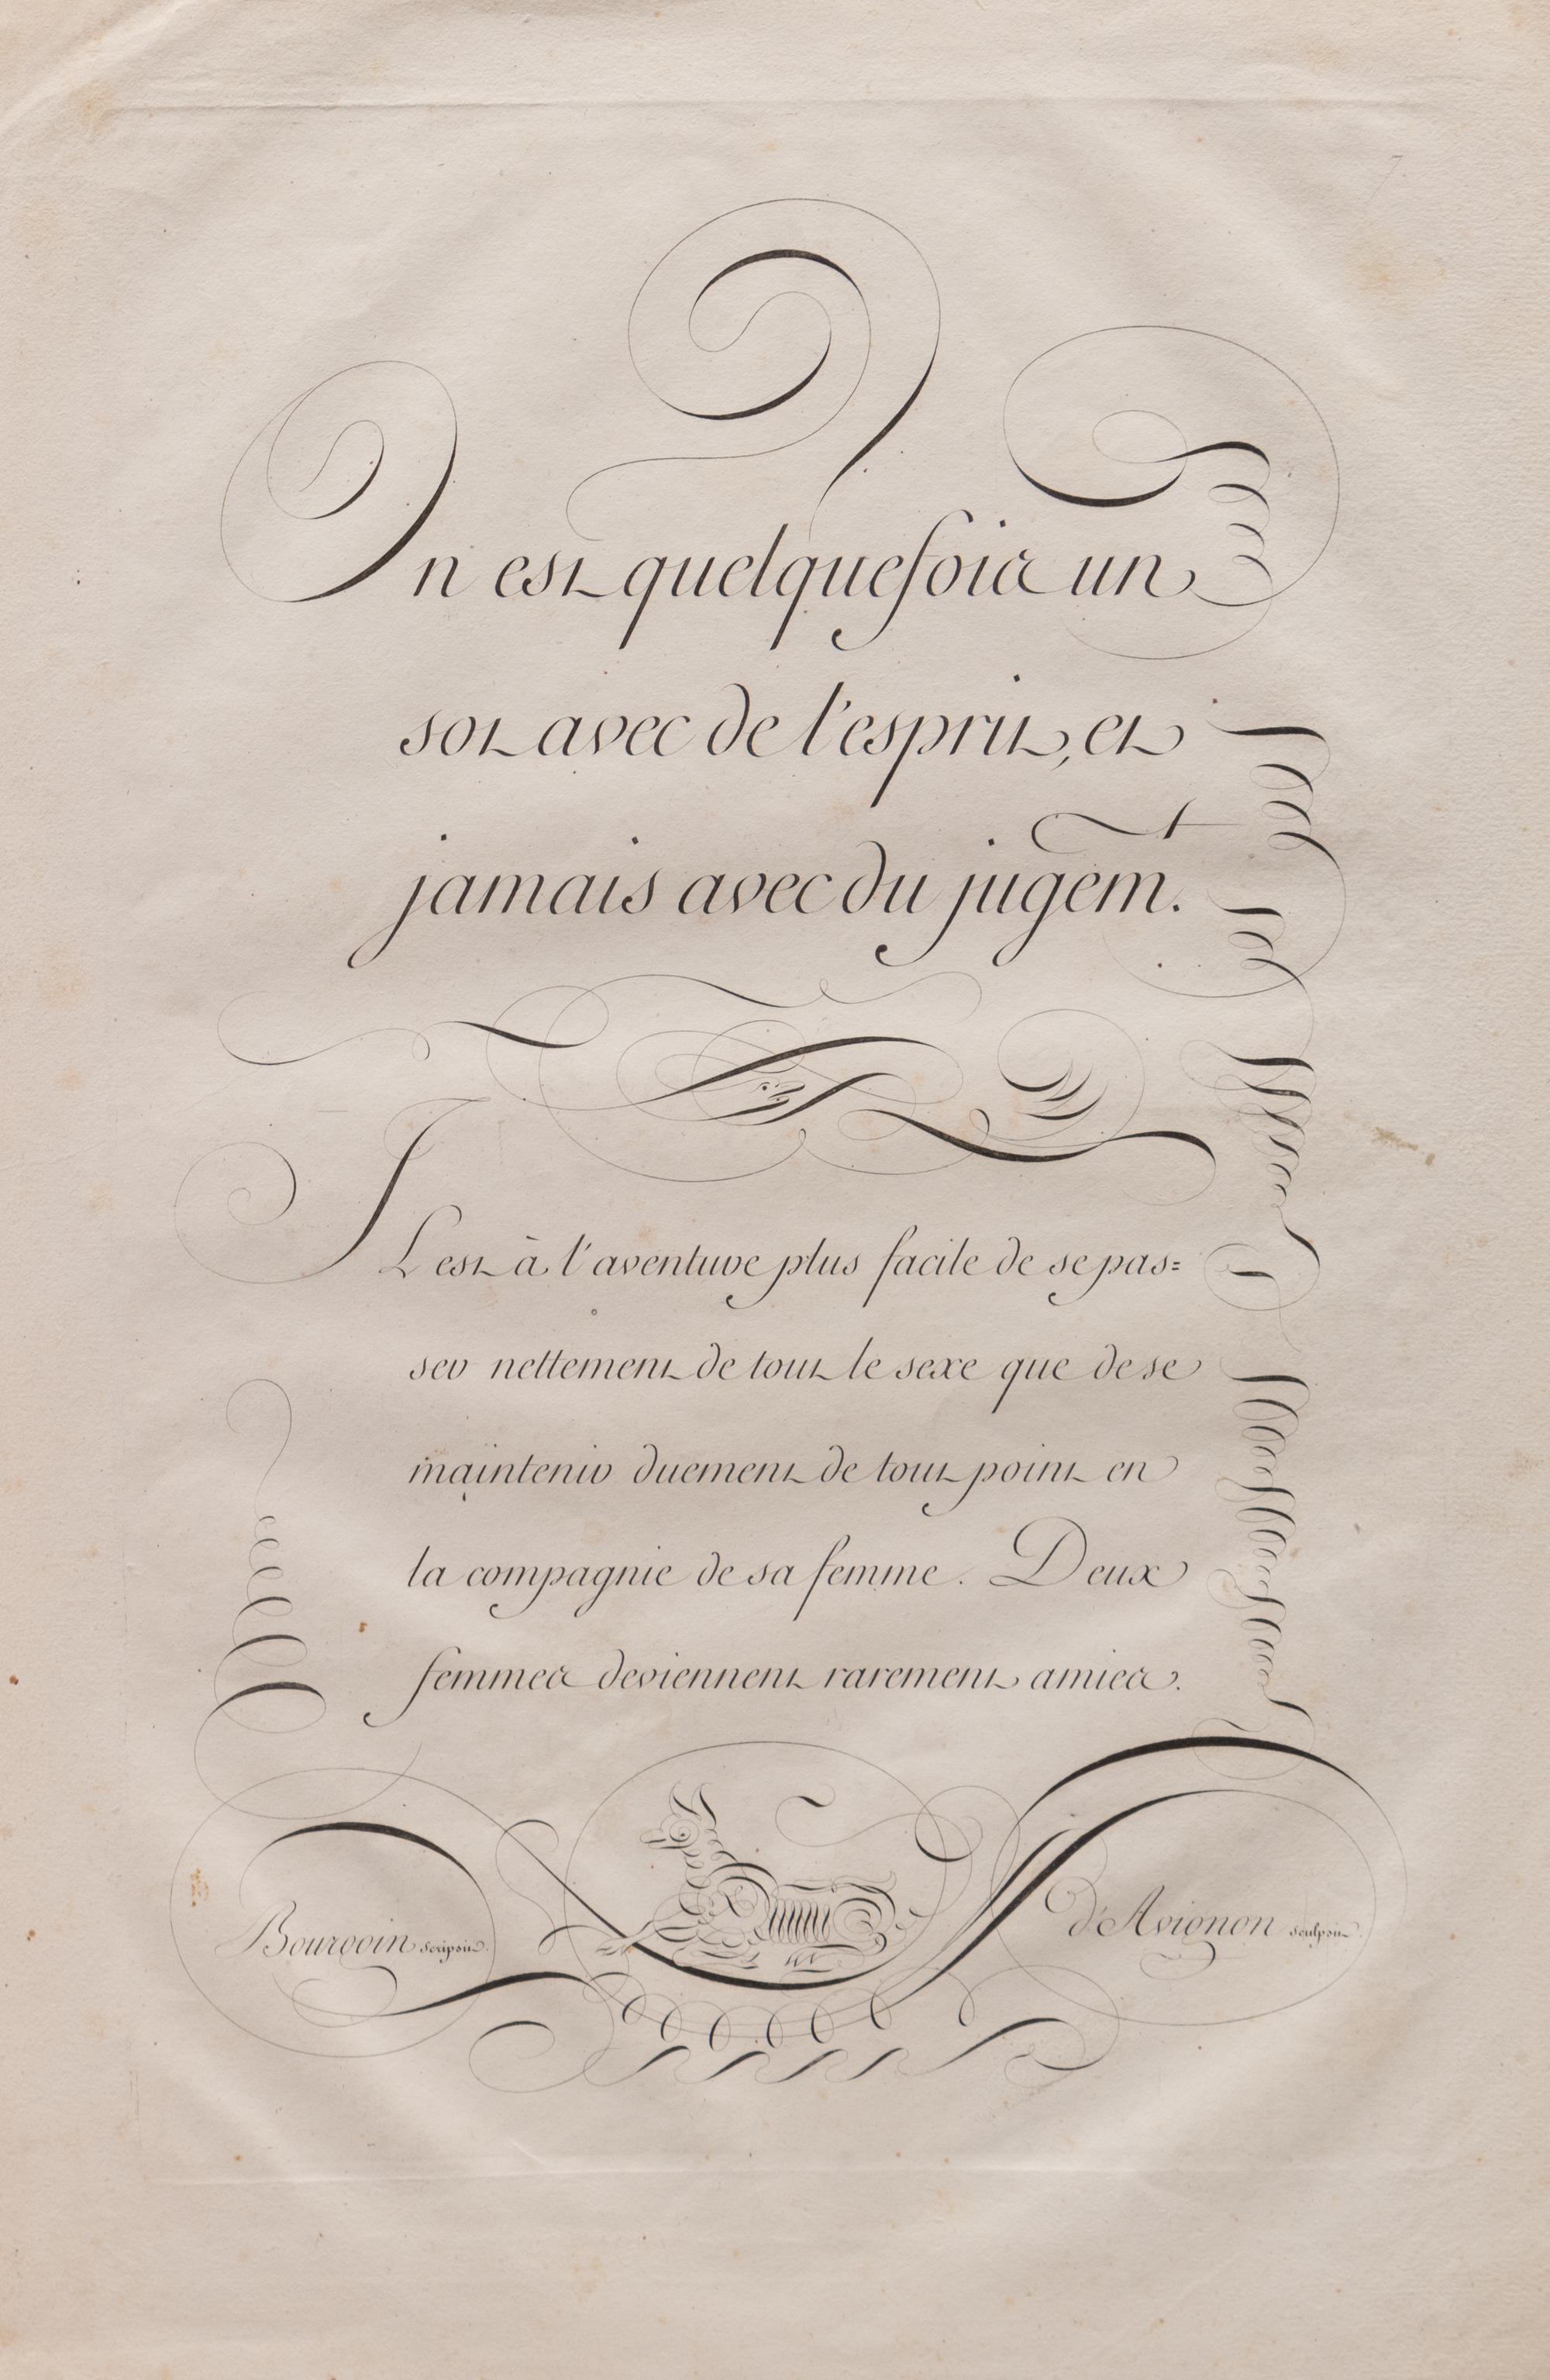 7
On est quelquefois un
sot avec de l'esprit, et
jamais avec du jugem̃t.
IL est à l'aventure plus facile de se pas=
ser nettement de tout le sexe que de se
maintenir duement de tout point en
la compagnie de sa femme. Deux
femmes deviennent rarement amies.
Bourgoin scripsit. d'Avignon sculpsit.